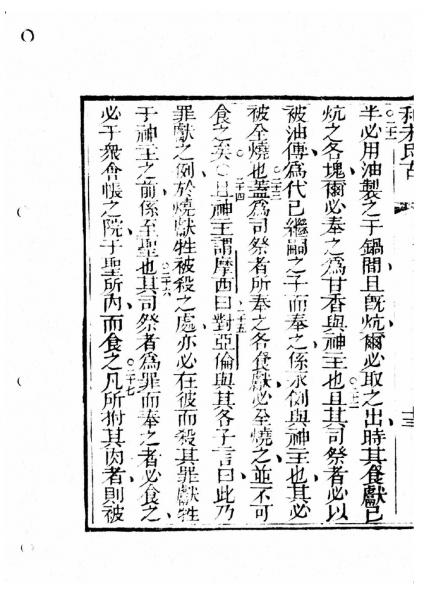 半必用油製之于鍋間且旣炕爾必取之出時其食獻已
炕之各塊爾必奉之爲甘香與神主也且其司祭者必以
被油傅爲代已繼嗣之子而奉之係永例與神主也其必
被全燒也蓋爲司祭者所奉之各食獻必全燒之並不可
食之矣○且神主謂摩西曰對亞倫與其各子言曰此乃
罪獻之例於燒獻牲被殺之處亦必在彼而殺其罪獻牲
于神主之前係至聖也其司祭者爲罪而奉之者必食之
必于衆會帳之院于聖所內而食之凡所拊其肉者則被